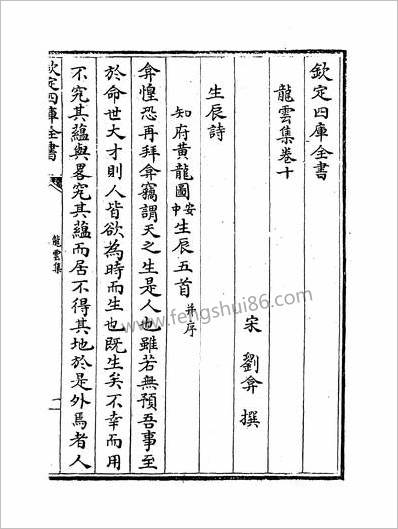 欽定四庫全書
龍雲集卷十
宋 劉弇 撰
生辰詩
知府黄龍圖安中生辰五首并序
弇惶恐再拜弇竊謂天之生是人也雖若無預吾事至
於命世大才則人皆欲為時而生也既生矣不幸而用
不究其藴與畧究其藴而居不得其地於是外焉者人
欽定四庫全書
龍雲集
一
www.fengshui86.com